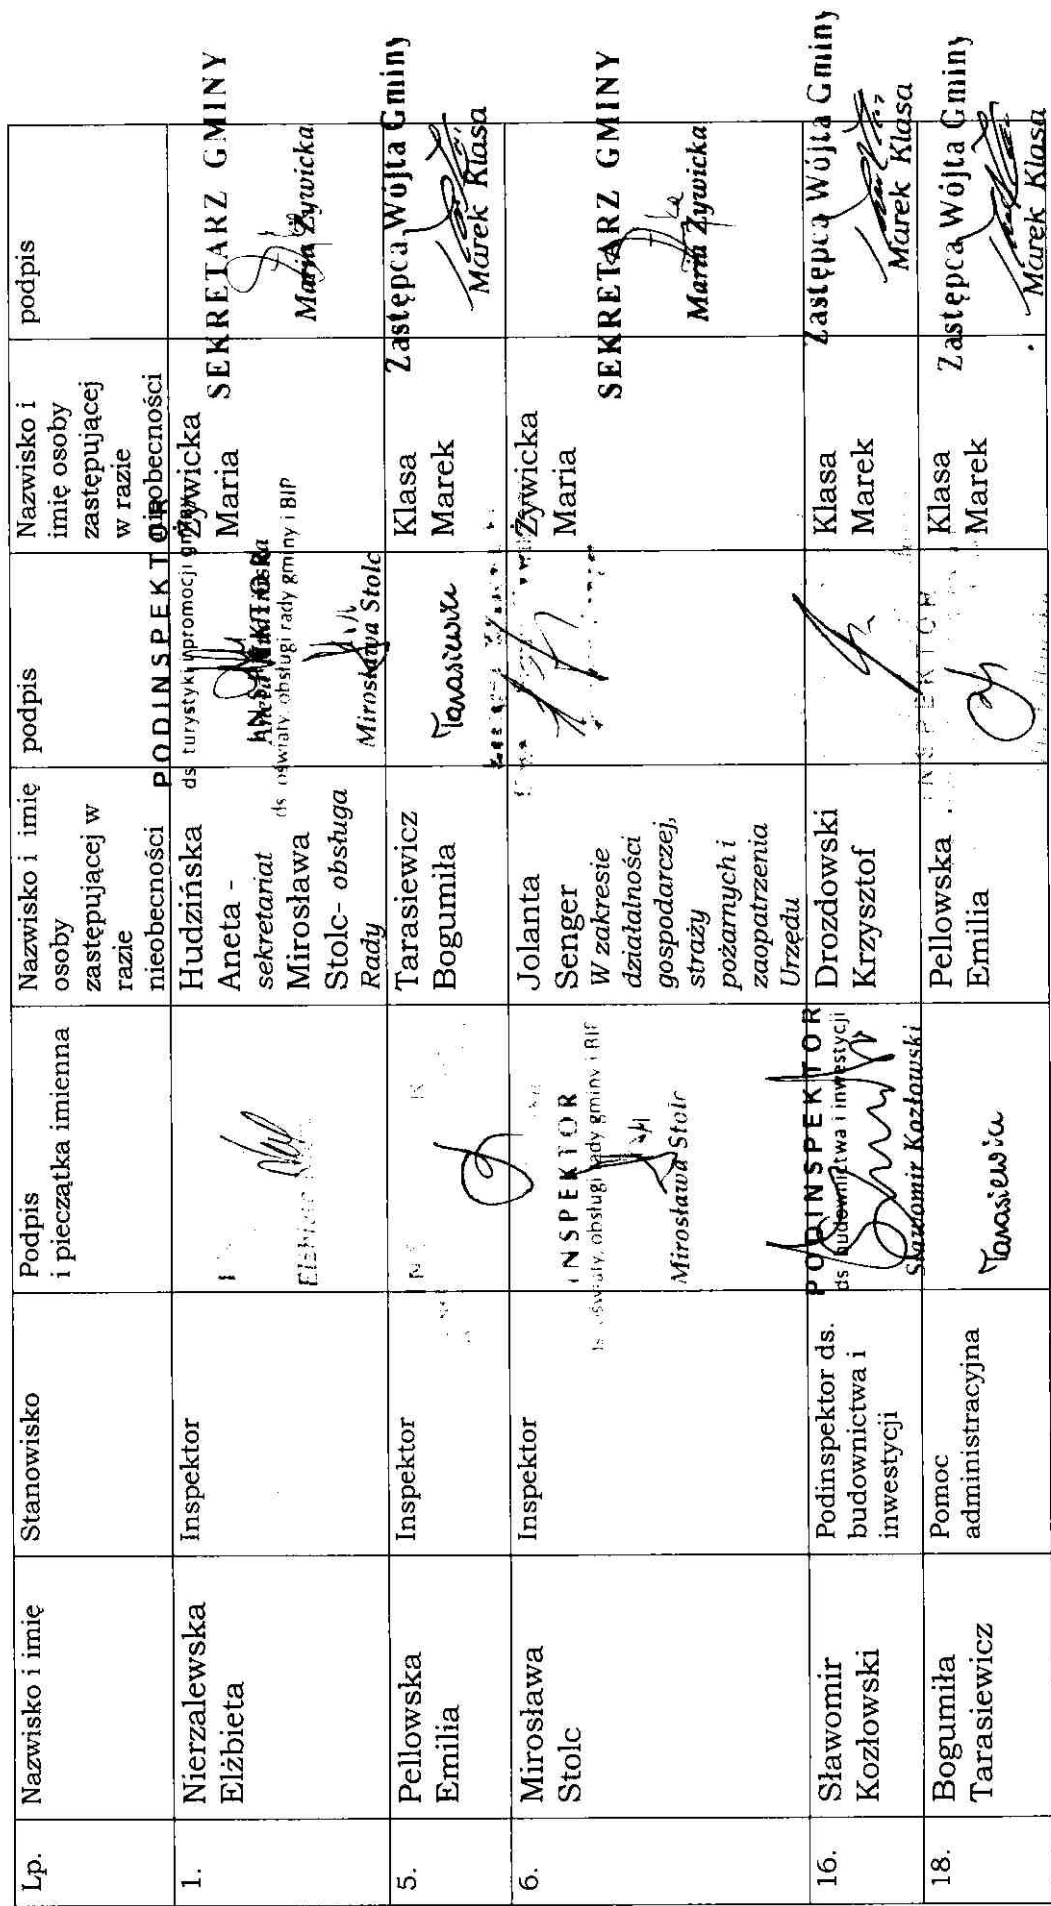 Lp.
Nazwisko i imię
Stanowisko
Podpis
i pieczątka imienna
Nazwisko i imię
osoby
zastępującej w
razie
nieobecności
podpis
Nazwisko i
imię osoby
zastępującej
w razie
nieobecności
podpis
1.
Nierzalewska
Elżbieta
Inspektor
Hudzińska
Aneta -
sekretariat
Mirosława
Stolc- obsługa
Rady
PODINSPEKTOR
ds turystyki i promocji gminy
INSPEKTOR
ds oświaty, obsługi rady gminy i BIP
Mirosława Stolc
Żywicka
Maria
SEKRETARZ GMINY
Maria Żywicka
5.
Pellowska
Emilia
Inspektor
Tarasiewicz
Bogumiła
Tarasiewicz
Klasa
Marek
Zastępca Wójta Gminy
Marek Klasa
6.
Mirosława
Stolc
Inspektor
INSPEKTOR
ds oświaty, obsługi rady gminy i BIP
Mirosława Stolc
Jolanta
Senger
W zakresie
działalności
gospodarczej,
straży
pożarnych i
zaopatrzenia
Urzędu
Żywicka
Maria
SEKRETARZ GMINY
Maria Żywicka
16.
Sławomir
Kozłowski
Podinspektor ds.
budownictwa i
inwestycji
PODINSPEKTOR
ds budownictwa i inwestycji
Sławomir Kozłowski
Drozdowski
Krzysztof
Klasa
Marek
Zastępca Wójta Gminy
Marek Klasa
18.
Bogumiła
Tarasiewicz
Pomoc
administracyjna
Tarasiewicz
Pellowska
Emilia
INSPEKTOR
Klasa
Marek
Zastępca Wójta Gminy
Marek Klasa